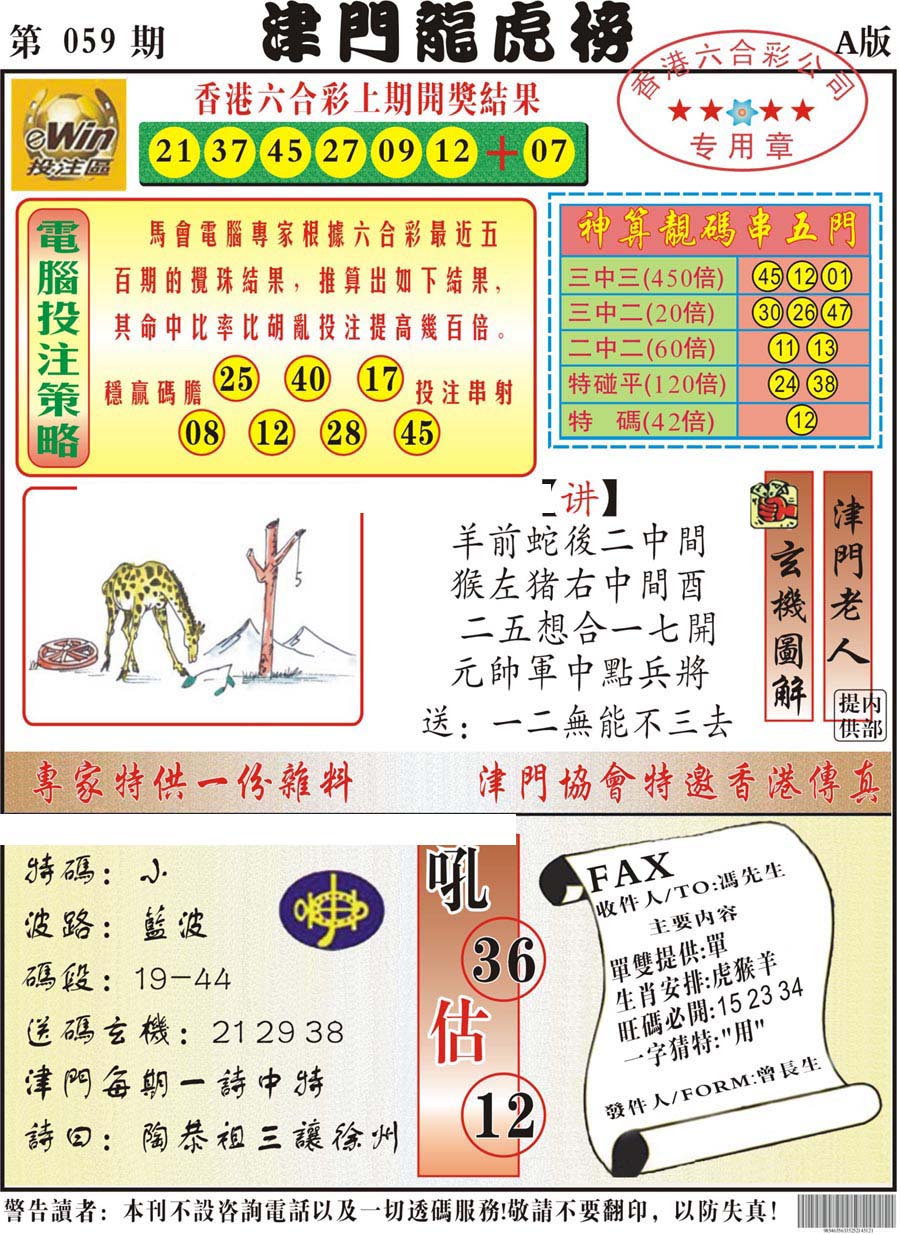 第 059 期
津門龍虎榜
A版
eWin
投注區
香港六合彩上期開獎結果
21 37 45 27 09 12 + 07
香港六合彩公司
专用章
電腦投注策略
馬會電腦專家根據六合彩最近五
百期的攪珠結果，推算出如下結果，
其命中比率比胡亂投注提高幾百倍。
穩贏碼膽 25 40 17 投注串射
08 12 28 45
神算靚碼串五門
三中三(450倍) 45 12 01
三中二(20倍) 30 26 47
二中二(60倍) 11 13
特碰平(120倍) 24 38
特 碼(42倍) 12
5
【讲】
羊前蛇後二中間
猴左猪右中間酉
二五想合一七開
元帥軍中點兵將
送：一二無能不三去
玄機圖解
津門老人
内部提供
專家特供一份雜料
津門協會特邀香港傳真
特碼：小
波路：藍波
碼段：19-44
送碼玄機：21 29 38
津門每期一詩中特
詩曰：陶恭祖三讓徐州
吼
36
估
12
FAX
收件人/TO:馮先生
主要内容
單雙提供:單
生肖安排:虎猴羊
旺碼必開:15 23 34
一字猜特:"用"
發件人/FORM:曾長生
警告讀者：本刊不設咨詢電話以及一切透碼服務!敬請不要翻印，以防失真！